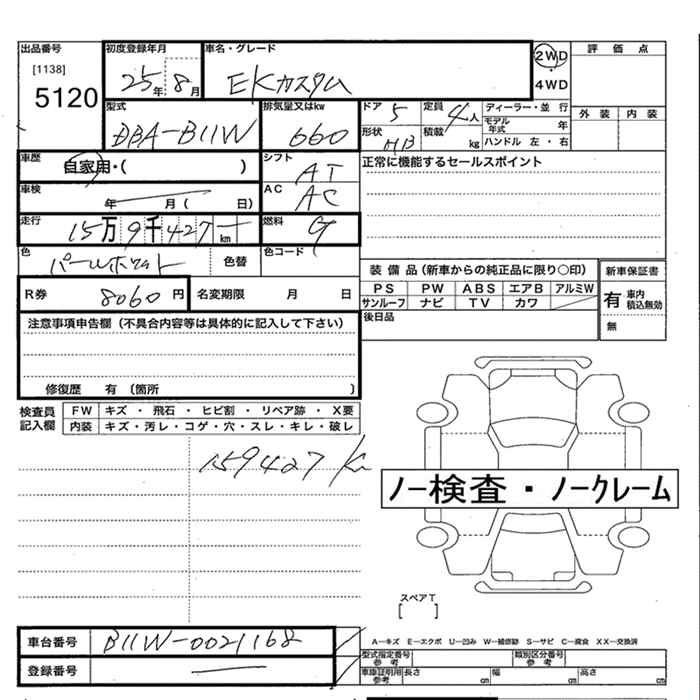 出品番号
[1138]
5120
初度登録年月
25年 8月
車名・グレード
EKカスタム
2WD
4WD
評価点
外装 内装
型式
DBA-B11W
排気量又はkw
660
ドア 5
定員 4人
ディーラー・並行
モデル年式 年
形状 HB
積載 kg
ハンドル 左・右
車歴
自家用・( )
シフト
AT
正常に機能するセールスポイント
車検
年 月 ( 日)
AC
AC
走行
15万9千427km
燃料
G
色
パールホワイト
色替
色コード ( )
装備品(新車からの純正品に限り○印)
PS PW ABS エアB アルミW
サンルーフ ナビ TV カワ
新車保証書
有 車内積込無効
無
R券 8060円
名変期限 月 日
後日品
注意事項申告欄(不具合内容等は具体的に記入して下さい)
修復歴 有 (箇所 )
検査員記入欄
FW キズ・飛石・ヒビ割・リペア跡・X要
内装 キズ・汚レ・コゲ・穴・スレ・キレ・破レ
159427 km
ノー検査・ノークレーム
スペアT
[ ]
車台番号 B11W-0021168
登録番号
A―キズ E―エクボ U―凹み W―補修跡 S―サビ C―腐食 XX―交換済
型式指定番号 参考
類別区分番号 参考
車庫証明用 参考 長さ cm 幅 cm 高さ cm